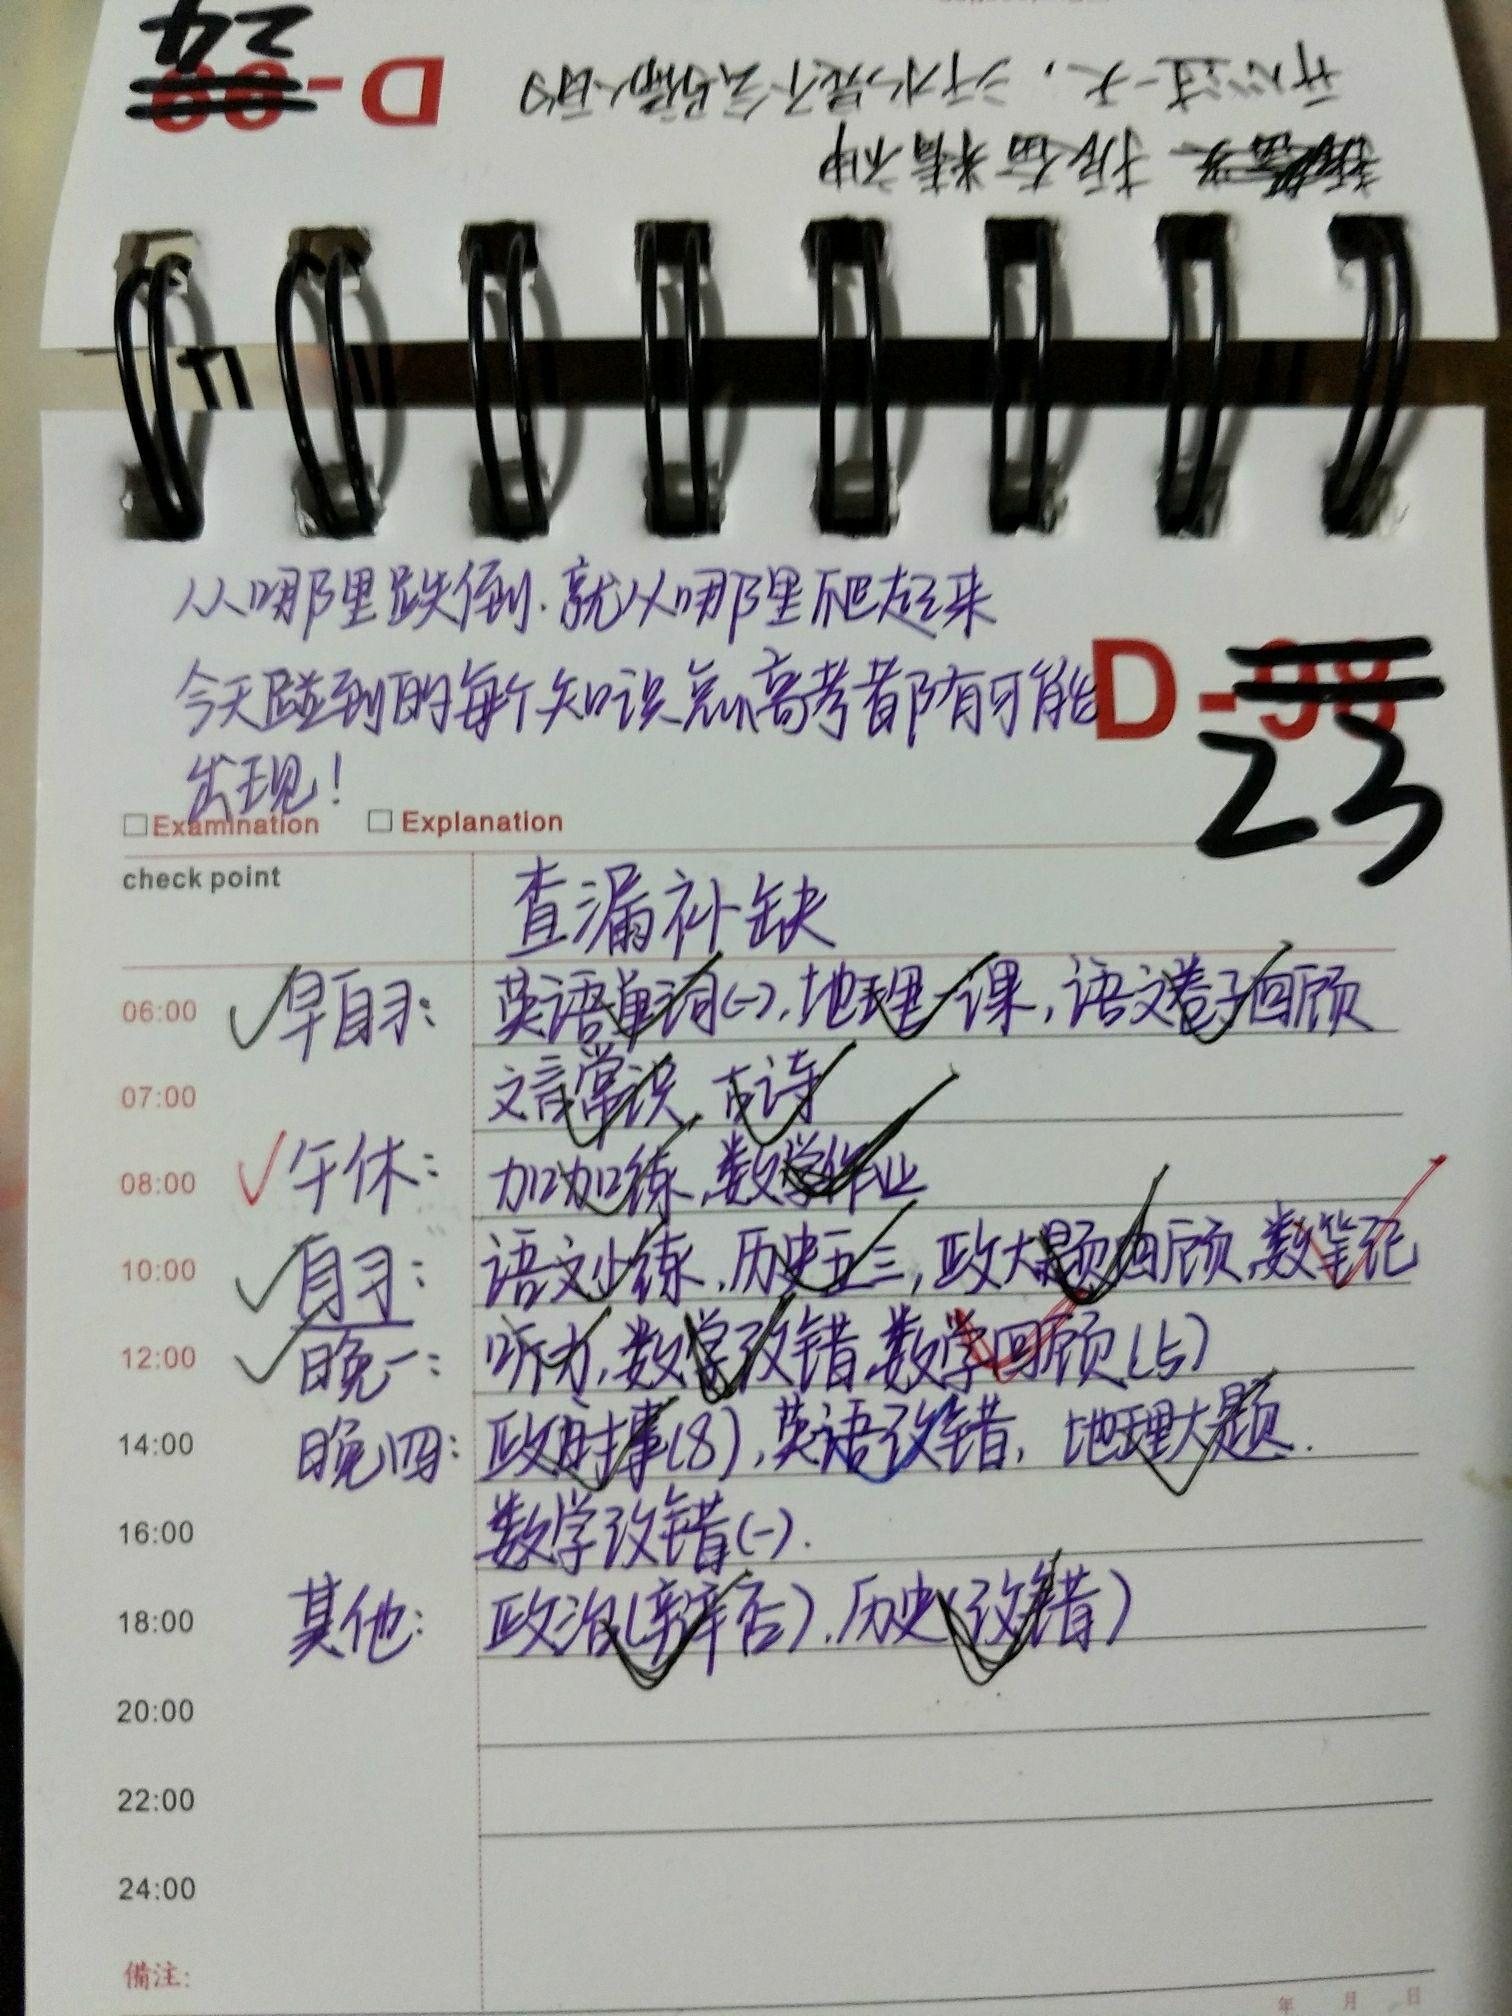 D-98
24
开心过一天，汗水是不会骗人的
振奋精神
从哪里跌倒.就从哪里爬起来
今天碰到的每个知识点高考都有可能
出现!
D-98
23
□Examination □ Explanation
check point 查漏补缺
06:00 早自习: 英语单词(一).地理一课,语文卷子回顾
07:00 文言常识、古诗
08:00 午休: 加加练、数学作业
10:00 自习: 语文小练、历史五三,政大题回顾、数笔记
12:00 晚一: 听力,数学改错、数学回顾(5)
14:00 晚四: 政时事(8),英语改错, 地理大题.
16:00 数学改错(一).
18:00 其他: 政治(辩否).历史(改错)
20:00
22:00
24:00
備注:
年 月 日